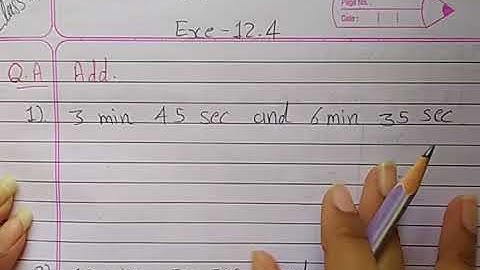 Class
Page No.:
Date:
Exe-12.4
Q.A Add.
1). 3 min 45 sec and 6 min 35 sec